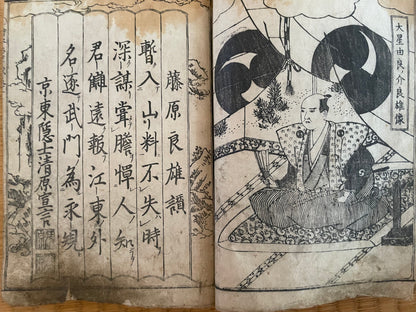 大星由良ノ介良雄像
藤原良雄讃
暫入山科不失時
深謀甞膽憚人知
君讎遠報江東外
名逐武門為永規
京東隠士清原宣言